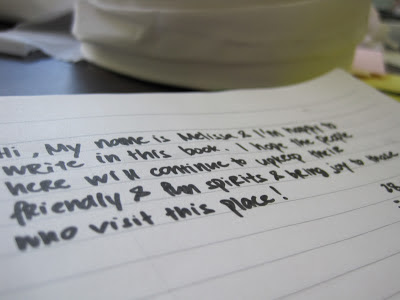 Hi, My name is Melissa & I'm happy to
write in this book. I hope the people
here will continue to upkeep their
friendly & fun spirits & being joy to those
who visit this place!